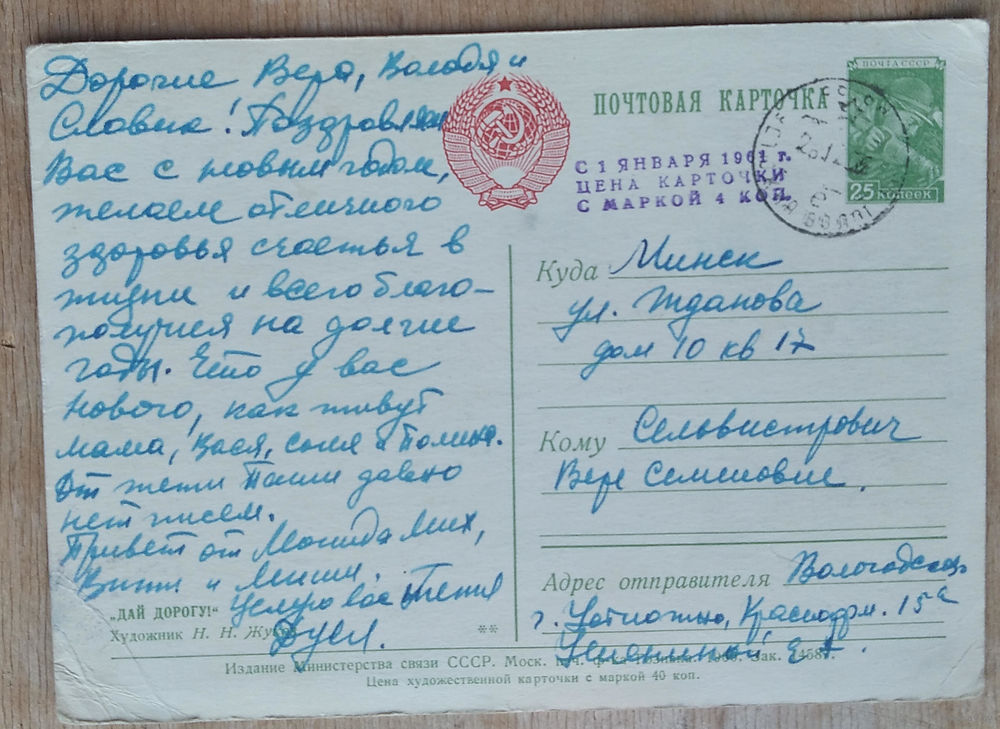 Дорогие Вера, Володя и
Славик! Поздравляем
Вас с новым годом,
желаем отличного
здоровья счастья в
жизни и всего благо-
получия на долгие
годы. Что у вас
нового, как живут
мама, Вася, Соня и Полина.
От тети Паши давно
нет писем.
Привет от Мих,
Вити и Миши.
Целую вас тетя
Дуся.
„ДАЙ ДОРОГУ!“
Художник Н. Н. Жуков
**
ПОЧТОВАЯ КАРТОЧКА
С 1 ЯНВАРЯ 1961 г.
ЦЕНА КАРТОЧКИ
С МАРКОЙ 4 КОП.
ПОЧТА СССР
25 копеек
Куда Минск
ул. Жданова
дом 10 кв 17
Кому Селовистрович
Вере Семеновне.
Адрес отправителя Вологодская
г. Устюжна, Красноарм. 15а
Е. А.
Издание Министерства связи СССР. Моск. ф-ка Гознака. 1960. Зак.
Цена художественной карточки с маркой 40 коп.